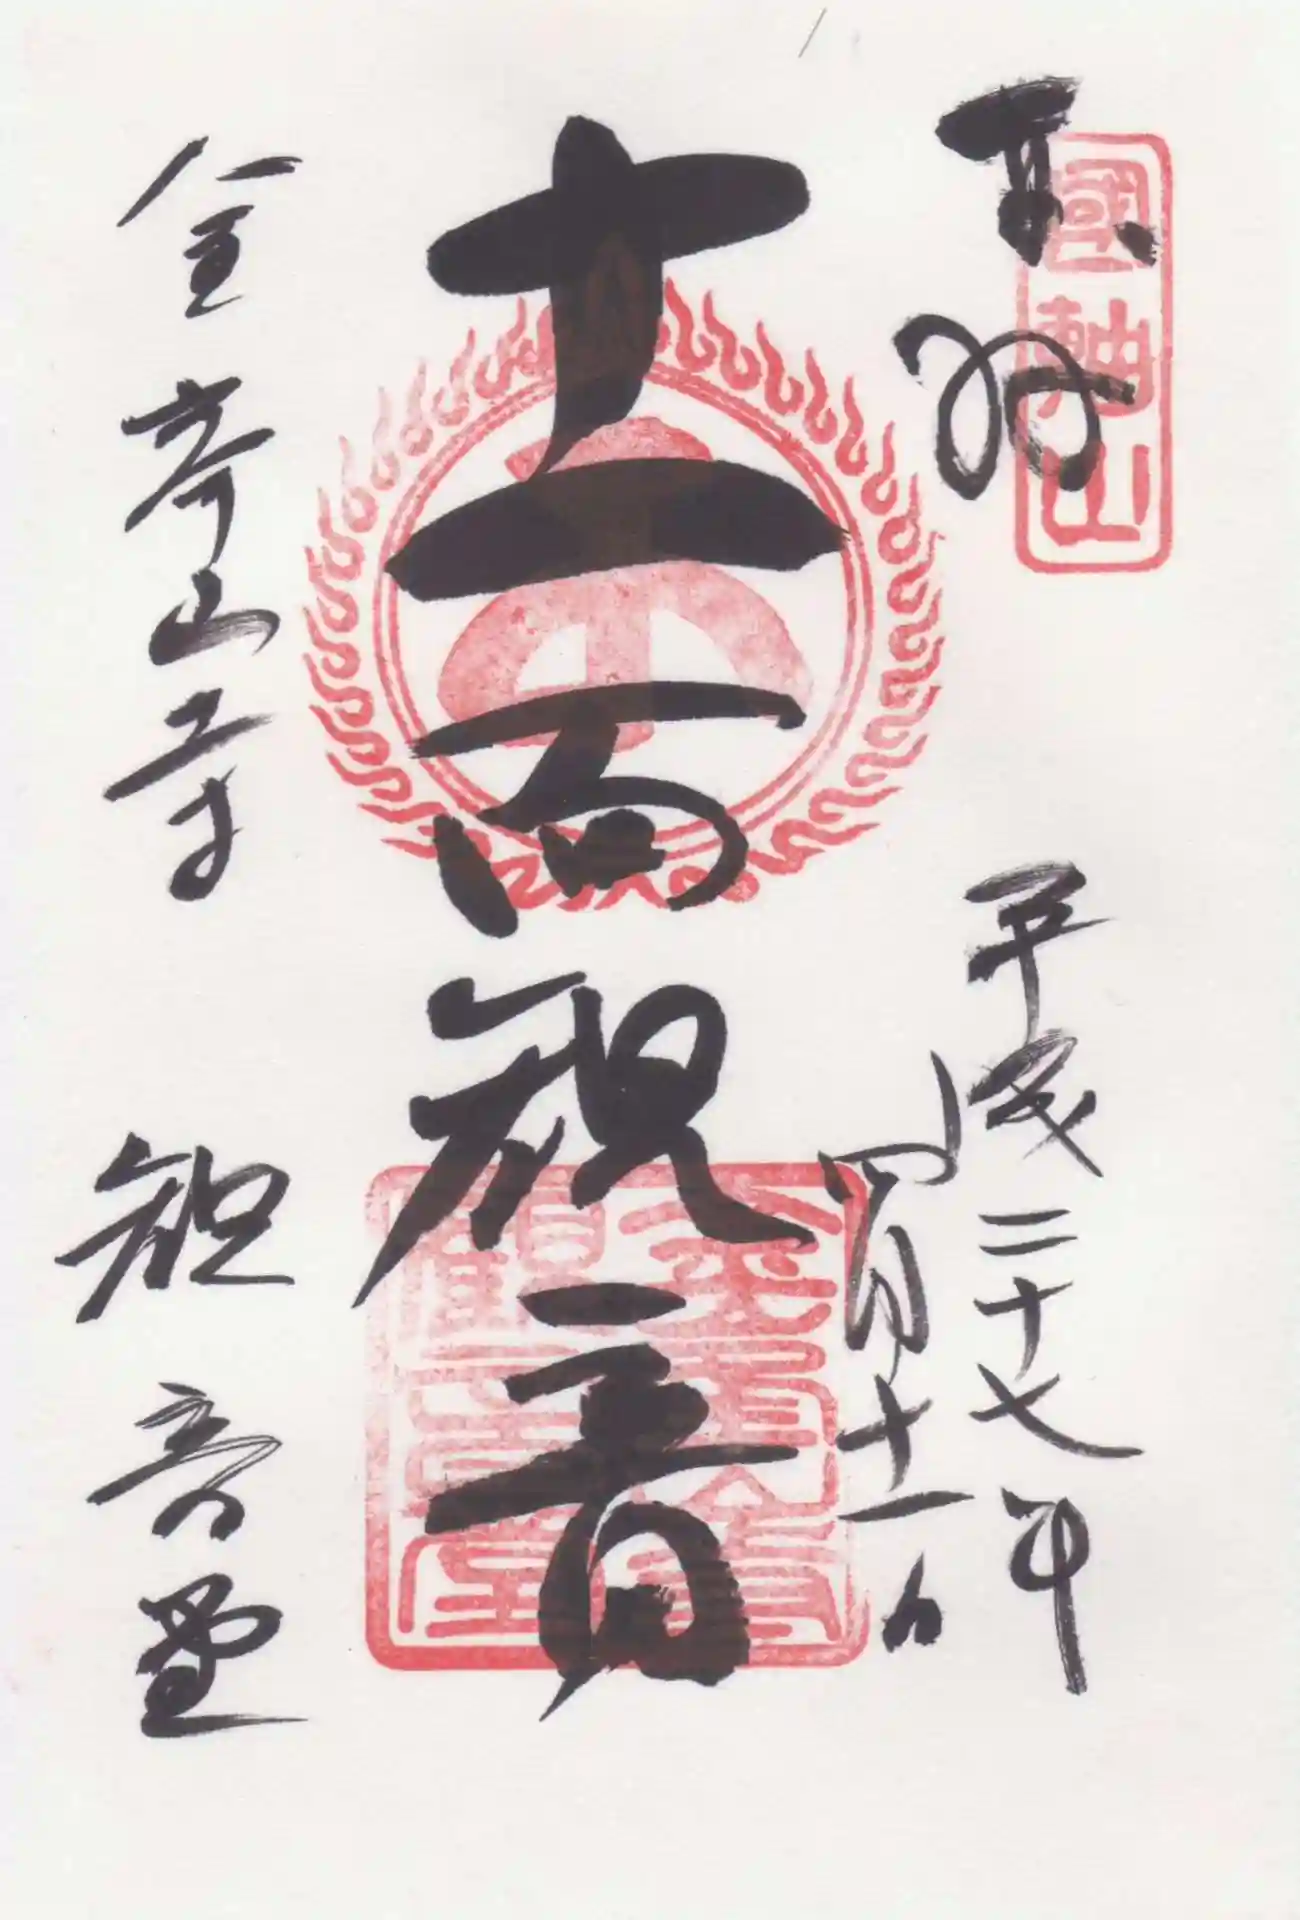 奉拝
國軸山
平成二十七年
四月十一日
十一面観音
金峯山寺
観音堂